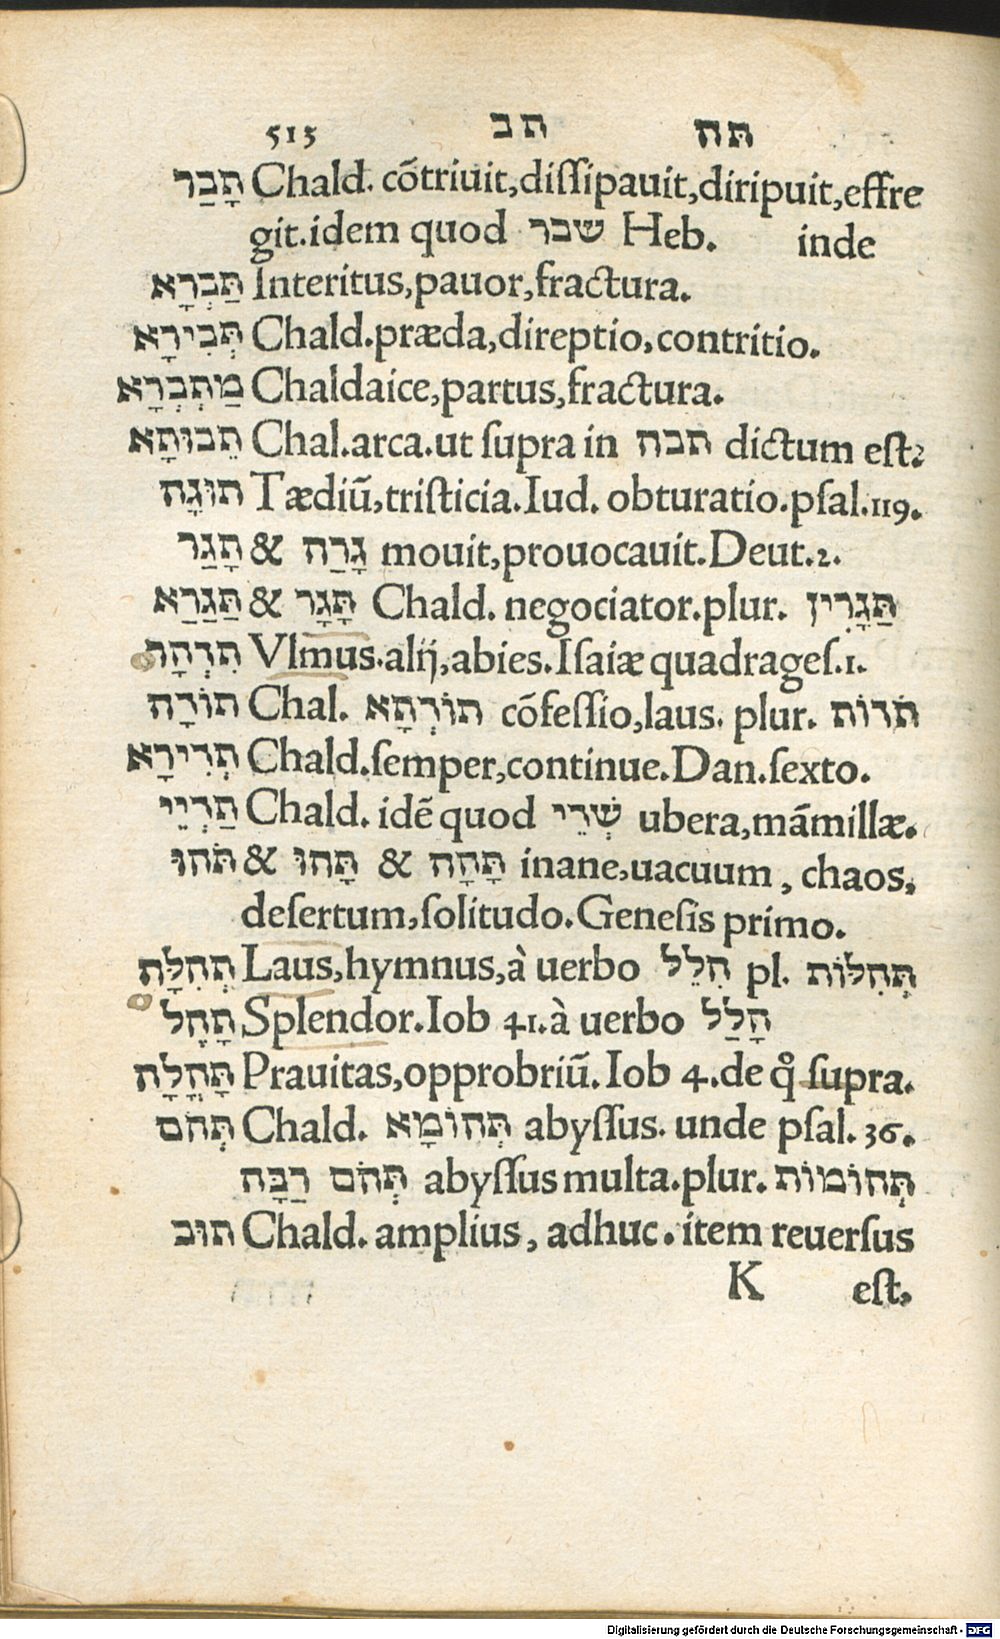 513 תב תה
תָּבַר Chald. cõtriuit,diſſipauit,diripuit,effre
git.idem quod שבר Heb. inde
תַּבְרָא Interitus,pauor,fractura.
תְּבִירָא Chald.præda,direptio,contritio.
מַתְבְּרָא Chaldaice,partus,fractura.
תֵבוּתָא Chal.arca.ut ſupra in תבה dictum eſt.
תוּגָה Tædiũ,triſticia.Iud. obturatio.pſal.119.
תָּגַר & גָרַה mouit,prouocauit.Deut.2.
תַּגַּרַא & תָּגָר Chald. negociator.plur. תַּגָּרִין
תִדְהָר Vlmus.alij,abies.Iſaiæ quadrageſ.1.
תוֹדָה Chal. תוֹדְתָא cõfeſſio,laus. plur. תֹדוֹת
תְדִירָא Chald.ſemper,continue.Dan.ſexto.
תַּדְיֵי Chald. idẽ quod שְׁדֵי ubera,mãmillæ.
תֹּהוּ & תָּהוּ & תָּהָה inane,uacuum, chaos,
deſertum,ſolitudo.Geneſis primo.
תְּהִלָּה Laus,hymnus,à uerbo הִלֵל pl. תְּהִלּוֹת
תָּהֶל Splendor.Iob 41.à uerbo הָלַל
תָּהֳלָה Prauitas,opprobriũ.Iob 4.de q̊ ſupra.
תְּהֹם Chald. תְּהוֹמָא abyſſus. unde pſal.36.
תְּהֹם רַבָּה abyſſus multa.plur. תְּהוֹמוֹת
תוּב Chald. amplius, adhuc. item reuerſus
K eſt,
Digitalisierung gefördert durch die Deutsche Forschungsgemeinschaft - DFG